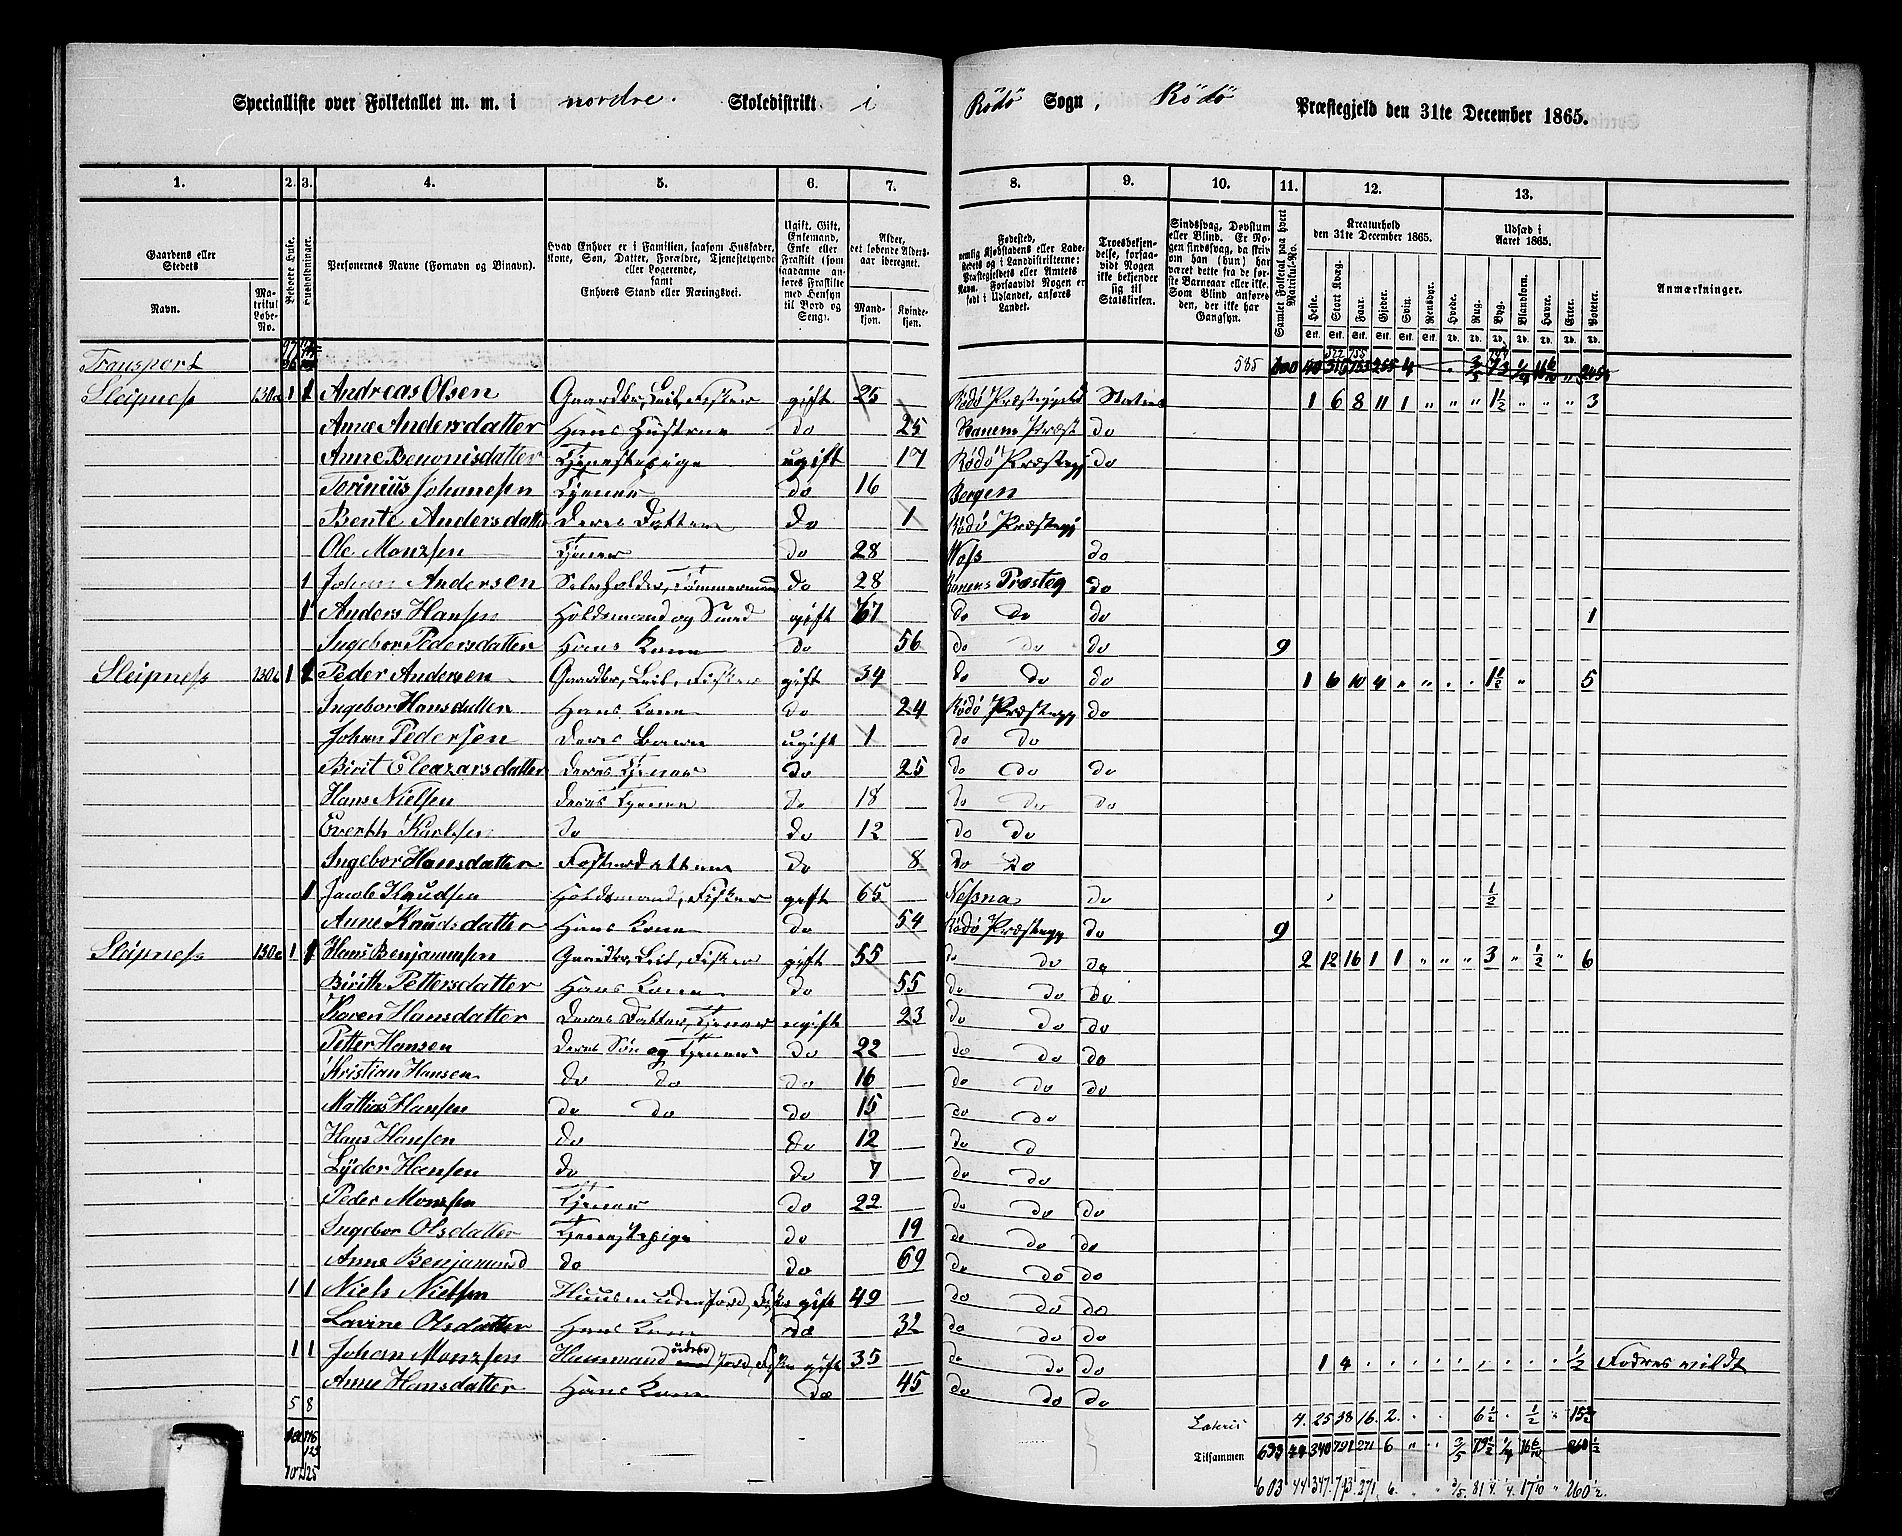 Specialliste over Folketallet m. m. i nordre Skoledistrikt i Rödö Sogn, Rödö Præstegjeld den 31te December 1865.
1. 2. 3. 4. 5. 6. 7. 8. 9. 10. 11. 12. 13.
Gaardens eller Stedets Navn. Matrikul Løbe-No. Beboede Huse. Husholdninger. Personernes Navne (Fornavn og Binavn). Hvad Enhver er i Familien, saasom Husfader, Kone, Søn, Datter, Forældre, Tjenestetyende eller Logerende, samt Enhvers Stand eller Næringsvei. Ugift, Gift, Enkemand, Enke eller Fraskilt (som saadanne anføres Fraskilte med Hensyn til Bord og Seng). Alder, det løbende Aldersaar iberegnet. Mandkjøn. Kvindekjøn. Fødested, Troesbekjendelse, forsaavidt Nogen ikke bekjender sig til Statskirken. Samlet Folketal paa hvert Matrikul-No. Kreaturhold den 31te December 1865. Heste. Stort Kvæg. Faar. Gjeder. Svin. Rensdyr. Udsæd i Aaret 1865. Hvede. Rug. Byg. Blandkorn. Havre. Erter. Poteter. Anmærkninger.
Transport 585
Sleipness 130 1 1 Andreas Olsen Gaardbr, Leil, Fisker gift 25 Rödö Præstegjeld 1 6 8 11 1 " " " 1½ " " " 3
Anne Andersdatter Hans Hustrue do 25 Præst do
Anne Benonisdatter Tjenestepige ugift 17 Rödö Præstegj do
Torinius Johanesen Tjener do 16 Bergen
Bente Andersdatter Deres Datter do 1 Rödö Præstegj
Ole Monssen Tjener do 28 Voss do
1 Johan Andersen Selvfolder, Tømmermand do 28 Præsteg do
1 Anders Hansen Foldsmand og Smed gift 67 do do do 1
Ingebor Pedersdatter Hans Kone do 56 do do do 9
Sleipness 130 1 1 Peder Andersen Gaardbr, Leil, Fisker gift 34 do do do 1 6 10 4 " " 1½ " 5
Ingebor Hansdatter Hans Kone do 24 Rödö Præstegj do
Johan Pedersen Deres Barn ugift 1 do do
Birit Eleazarsdatter deres Tjener do 25 do do do
Hans Nielsen deres Tjener do 18 do do do
Everth Karlsen do do 12 do do
Ingebor Hansdatter Fosterdatter do 8 do do
1 Jacob Knudsen Foldsmand, Fisker gift 65 Nessna do ½
Anne Knudsdatter Hans Kone do 54 Rödö Præstegj do 9
Sleipness 130 1 1 Hans Benjaminsen Gaardbr, Leil, Fisker gift 55 do do do 2 12 16 1 1 " " " 3 " ½ " 6
Birith Pettersdatter Hans Kone do 55 do do do
Karen Hansdatter Deres Datter, Tjener ugift 23 do do do
Petter Hansen deres Sön og Tjener do 22 do do do
Kristian Hansen do do do 16 do do do
Mattias Hansen do do do 15 do do
Hans Hansen do do 12 do d
Lyder Hansen do do 7 do do
Peder Monssen Tjener do 22 do do do
Ingebor Olsdatter Tjenestepige do 19 do do do
Anne Benjamind do do 69 do do do
1 1 Niels Nielsen Huusm uden Jord, Fisker gift 49 do do do
Lavine Olsdatter Hans Kone do 32 do do do
1 1 Johan Monssen Huusmand uden Jord, Fisker gift 35 do do do 1 4 ½
Anne Hansdatter Hans Kone do 45 do do do
5 8 Lateris 4. 25 38 16. 2. 6½ ½ 15½
Tilsammen 603 44 340 791 271 6 " " 3/5 79½ ¼ 16 6/10 260½
107 125 603 44 347 793 271 6. 3/5. 81 260½.